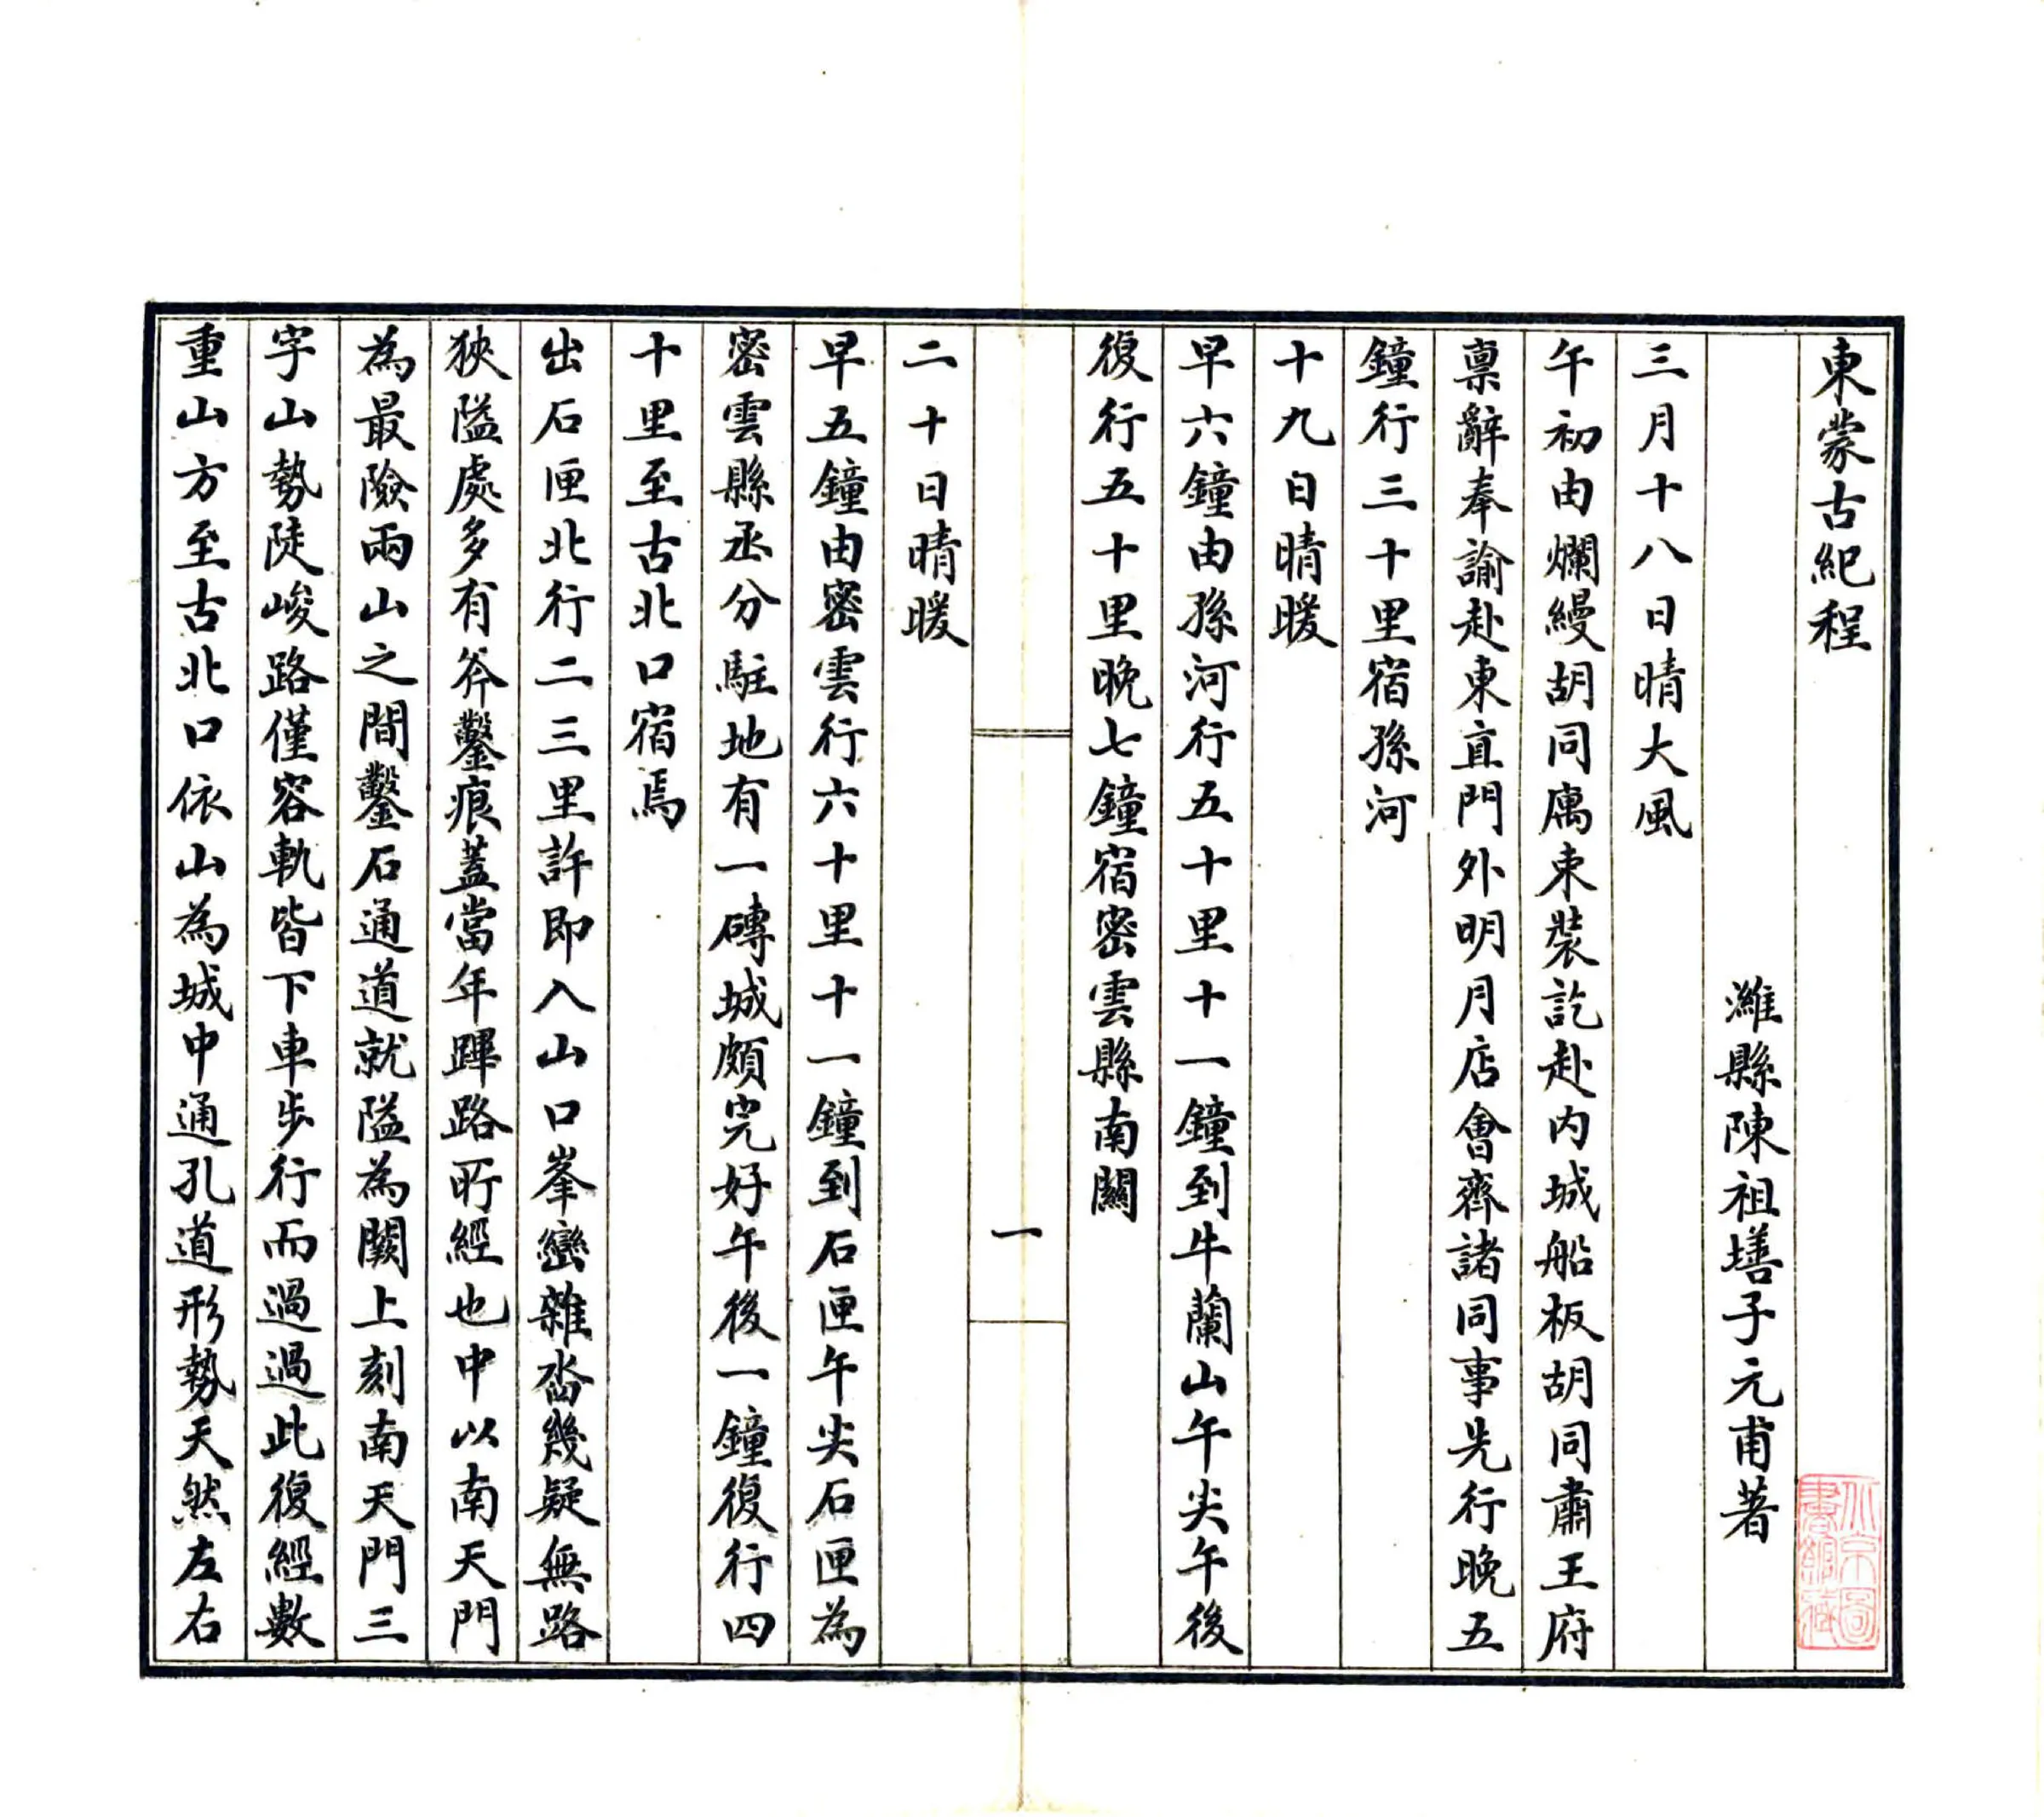 東蒙古紀程
濰縣陳祖墡子元甫著
三月十八日晴大風
午初由爛縵胡同寓束裝訖赴內城船板胡同肅王府
禀辭奉諭赴東直門外明月店會齊諸同事先行晚五
鐘行三十里宿孫河
十九日晴暖
早六鐘由孫河行五十里十一鐘到牛蘭山午尖午後
復行五十里晚七鐘宿密雲縣南關
一
二十日晴暖
早五鐘由密雲行六十里十一鐘到石匣午尖石匣為
密雲縣丞分駐地有一磚城頗完好午後一鐘復行四
十里至古北口宿焉
出石匣北行二三里許即入山口峯巒雜沓幾疑無路
狹隘處多有斧鑿痕蓋當年蹕路所經也中以南天門
為最險兩山之間鑿石通道就隘為闕上刻南天門三
字山勢陡峻路僅容軌皆下車步行而過過此復經數
重山方至古北口依山為城中通孔道形勢天然左右
北京圖
書館藏